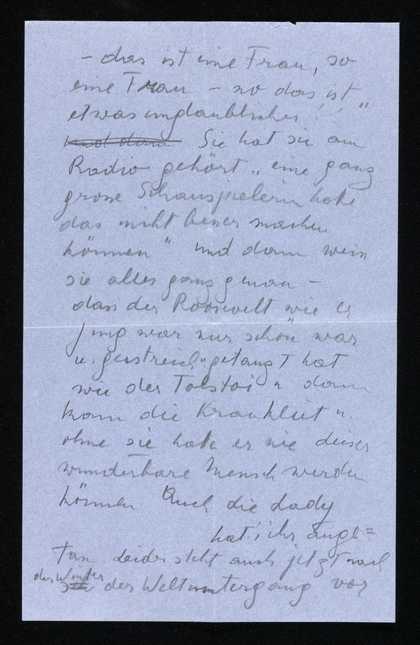 – das ist eine Frau, so
eine Frau – so das ist "
etwas unglaubliches!"
Sie hat sie am
Radio gehört „ eine ganz
grosse Schauspielerin hätte
das nicht besser machen
können " und dann weiss
sie alles ganz genau –
dass der Roosevelt wie er
jung war nur schön war
u. geistreich u getanzt hat
wie der Tolstoi u dann
kam die Krankheit u.
ohne sie hätte er nie dieser
wunderbare Mensch werden
können Auch die Lady
hat ihr
leider steht auch jetzt nach
der Winter
der Weltuntergang vor